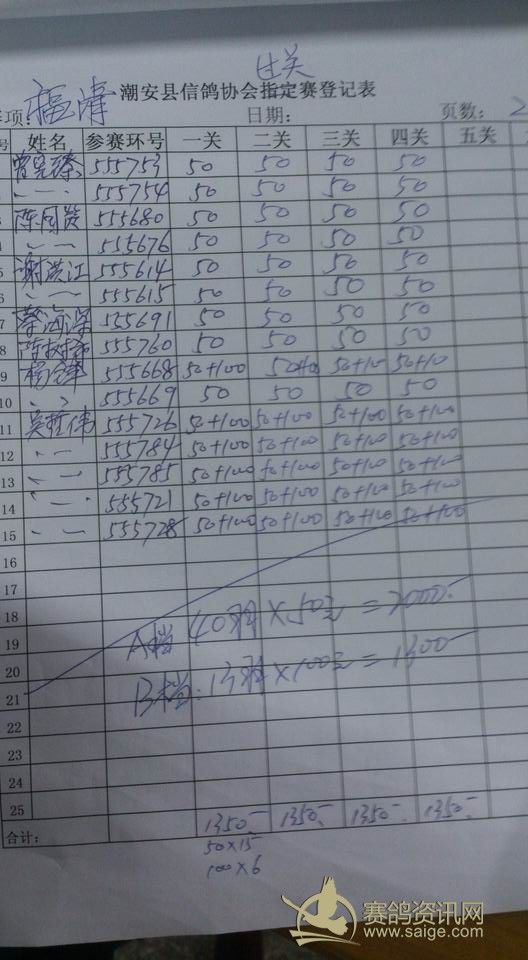 过关
福清 潮安县信鸽协会指定赛登记表
项: 日期: 页数: 2
号 姓名 参赛环号 一关 二关 三关 四关 五关
555753 50 50 50 50
〃 555754 50 50 50 50
555680 50 50 50 50
〃 555676 50 50 50 50
5 谢洪江 555614 50 50 50 50
6 〃 555615 50 50 50 50
7 蔡海深 555691 50 50 50 50
8 555760 50 50 50 50
9 555668 50+100 50+10 50+10 50+10
10 〃 555669 50 50 50 50
11 吴哲伟 555726 50+100 50+100 50+100 50+100
12 〃 555784 50+100 50+100 50+100 50+100
13 〃 555785 50+100 50+100 50+100 50+100
14 〃 555721 50+100 50+100 50+100 50+100
15 〃 555728 50+100 50+100 50+100 50+100
16
17
18
A档 40羽×50元=2000-
19
20
B档:13羽×100元=1300-
21
22
23
24
25
合计: 1350- 1350- 1350- 1350-
50×15
100×6
赛鸽资讯网
www.saige.com